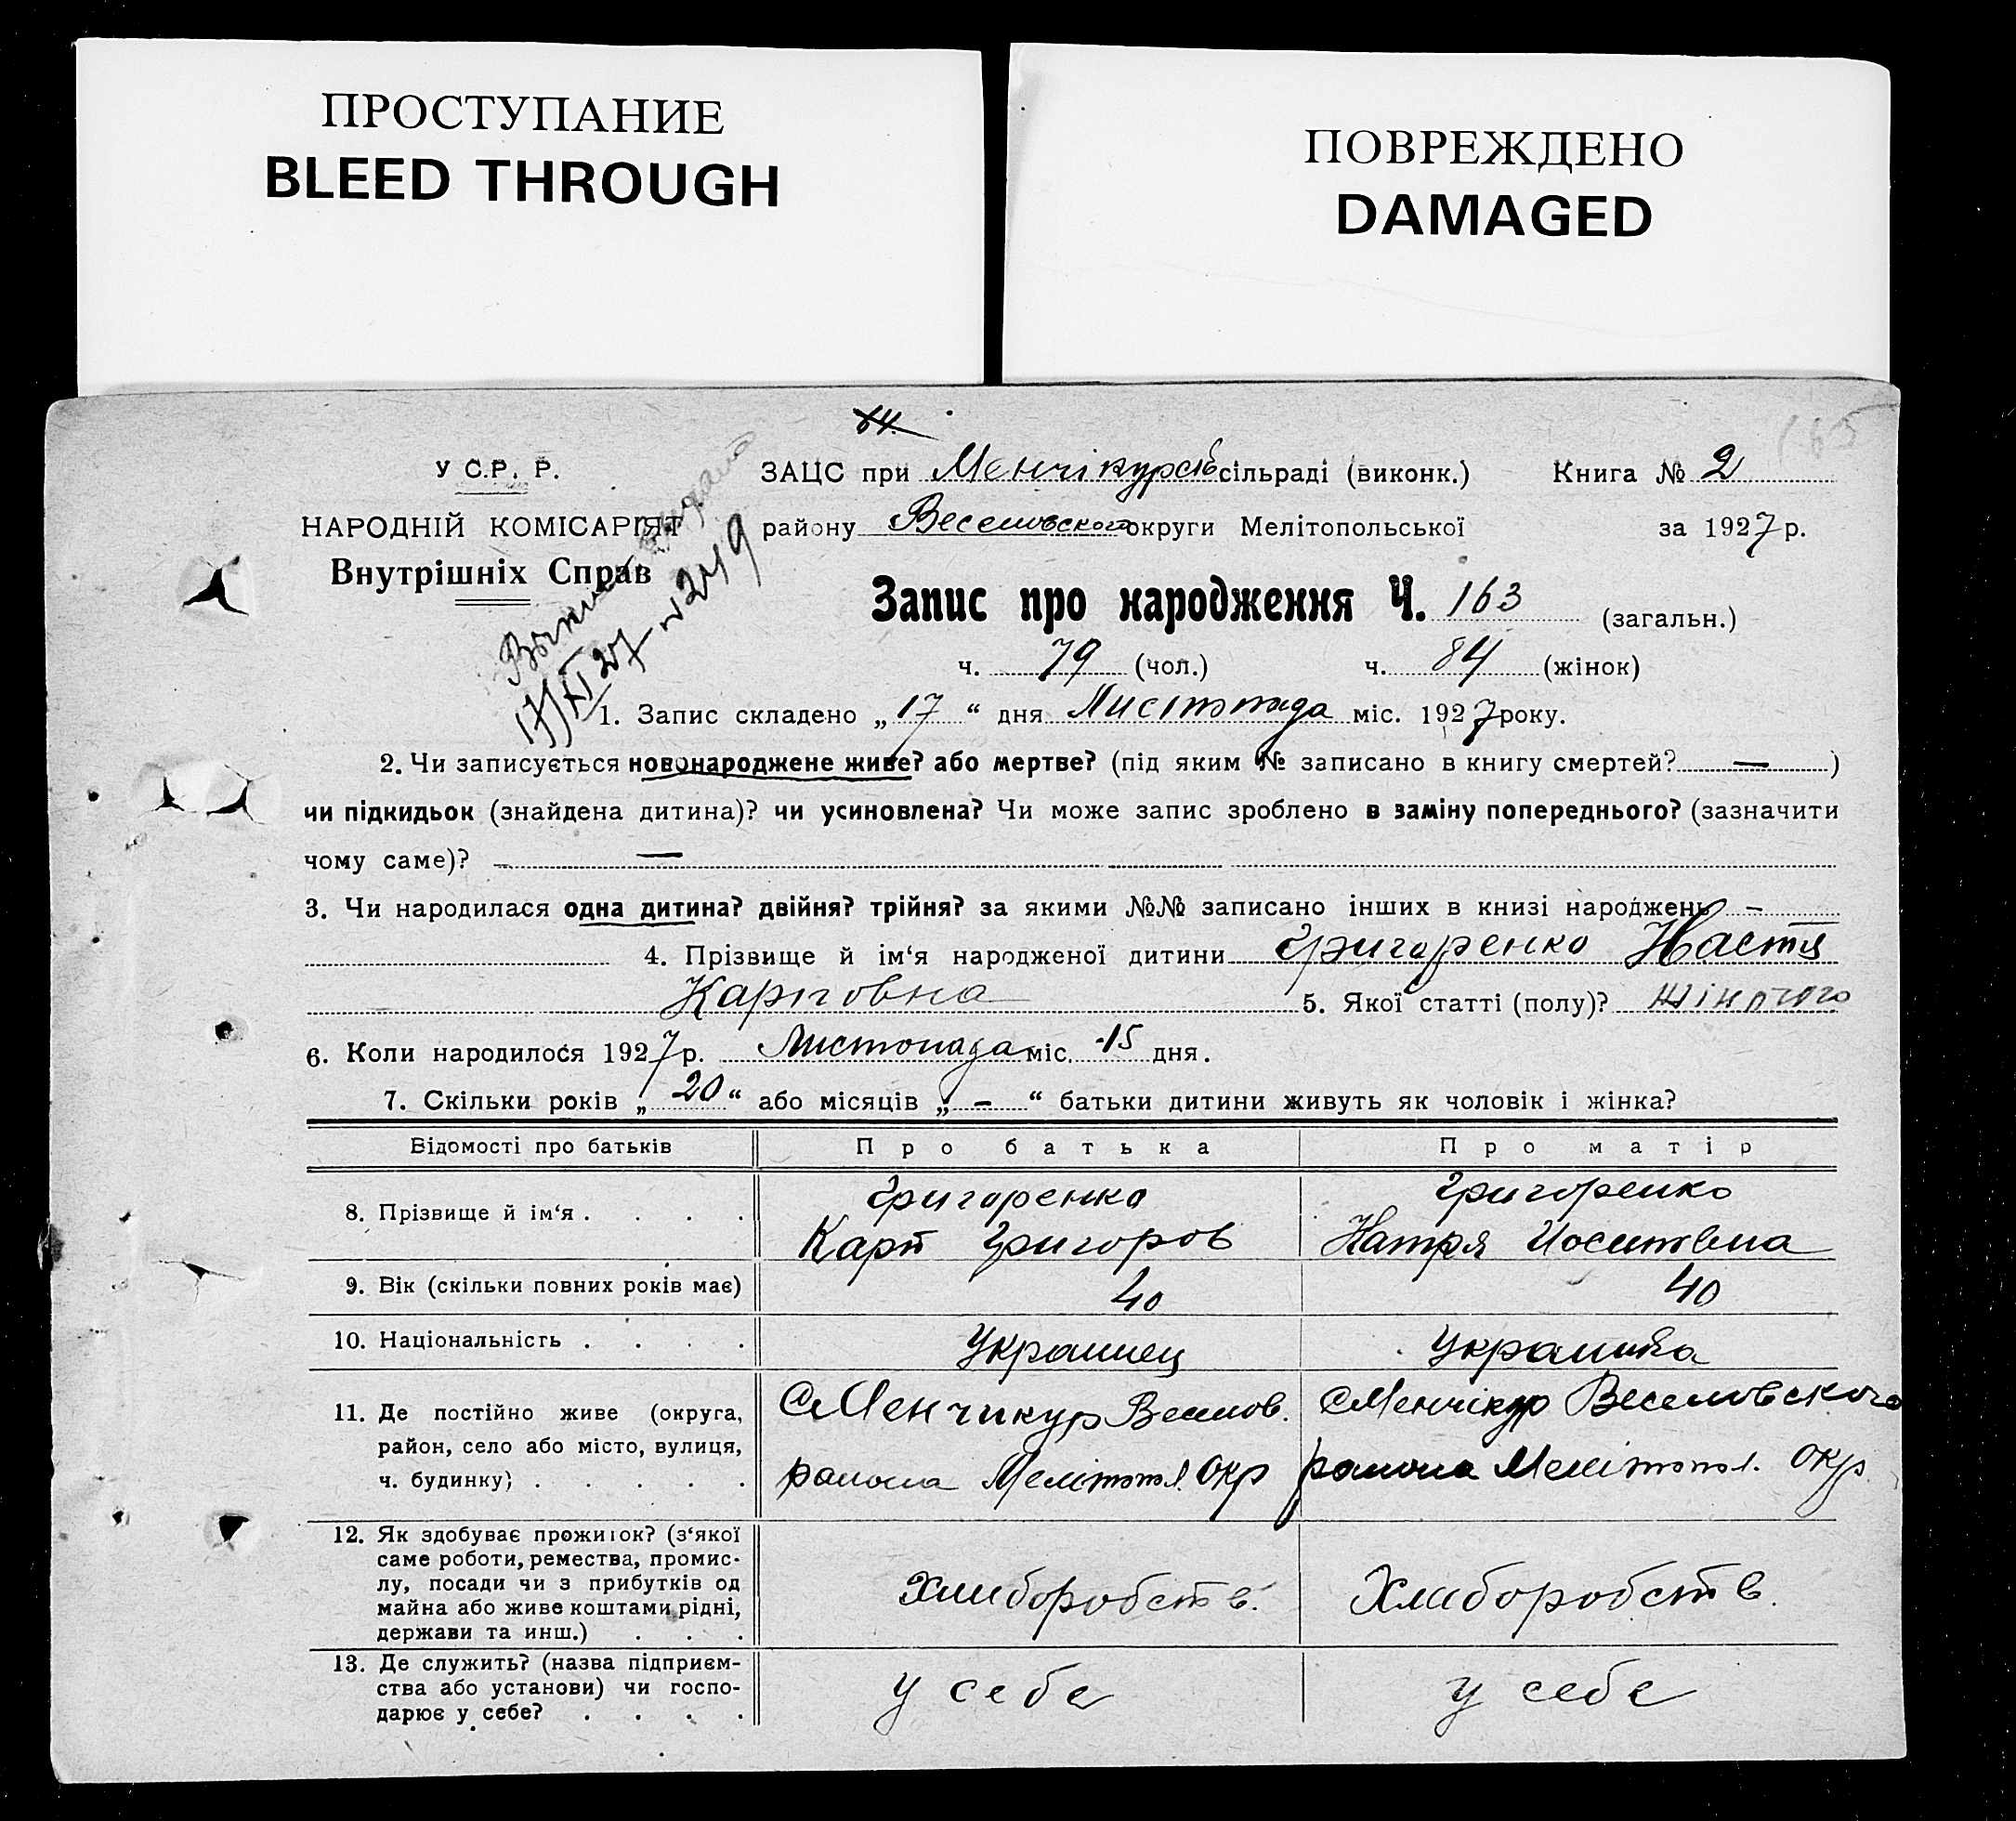 ПРОСТУПАНИЕ
BLEED THROUGH
ПОВРЕЖДЕНО
DAMAGED
64.
165
У С.Р.Р.
НАРОДНІЙ КОМІСАРІЯТ
Внутрішніх Справ
17/XI 27 № 2419
ЗАЦС при Менчікурськ сільраді (виконк.) Книга № 2
району Веселовского округи Мелітопольської за 1927 р.
Запис про народження Ч. 163 (загальн.)
ч. 79 (чол.) ч. 84 (жінок)
1. Запис складено „ 17 “ дня Листопада міс. 1927 року.
2. Чи записується новонароджене живе? або мертве? (під яким № записано в книгу смертей? — )
чи підкидьок (знайдена дитина)? чи усиновлена? Чи може запис зроблено в заміну попереднього? (зазначити
чому саме)? —
3. Чи народилася одна дитина? двійня? трійня? за якими №№ записано інших в книзі народжень –
4. Прізвище й ім‘я народженої дитини Григоренко Настя
Карповна 5. Якої статті (полу)? жіночого
6. Коли народилося 1927 р. Листопада міс. 15 дня.
7. Скільки років „ 20 “ або місяців „ – “ батьки дитини живуть як чоловік і жінка?
Відомості про батьків Про батька Про матір
8. Прізвище й ім‘я . . . . Григоренко Карп Григоров Григоренко Натря Иосиповна
9. Вік (скільки повних років має) 40 40
10. Національність . . . . Украинец Украинка
11. Де постійно живе (округа, С Менчикур Веселов. С Менчікур Веселовского
район, село або місто, вулиця,
ч. будинку) . . . . . района Мелітопол. Окр района Мелітопол. Окр.
12. Як здобуває прожиток? (з‘якої
саме роботи, ремества, промис-
лу, посади чи з прибутків од
майна або живе коштами рідні, Хлиборобств. Хлиборобств.
держави та инш.) . . .
13. Де служить? (назва підприєм-
ства або установи) чи госпо- у себе у себе
дарює у себе? . . . .